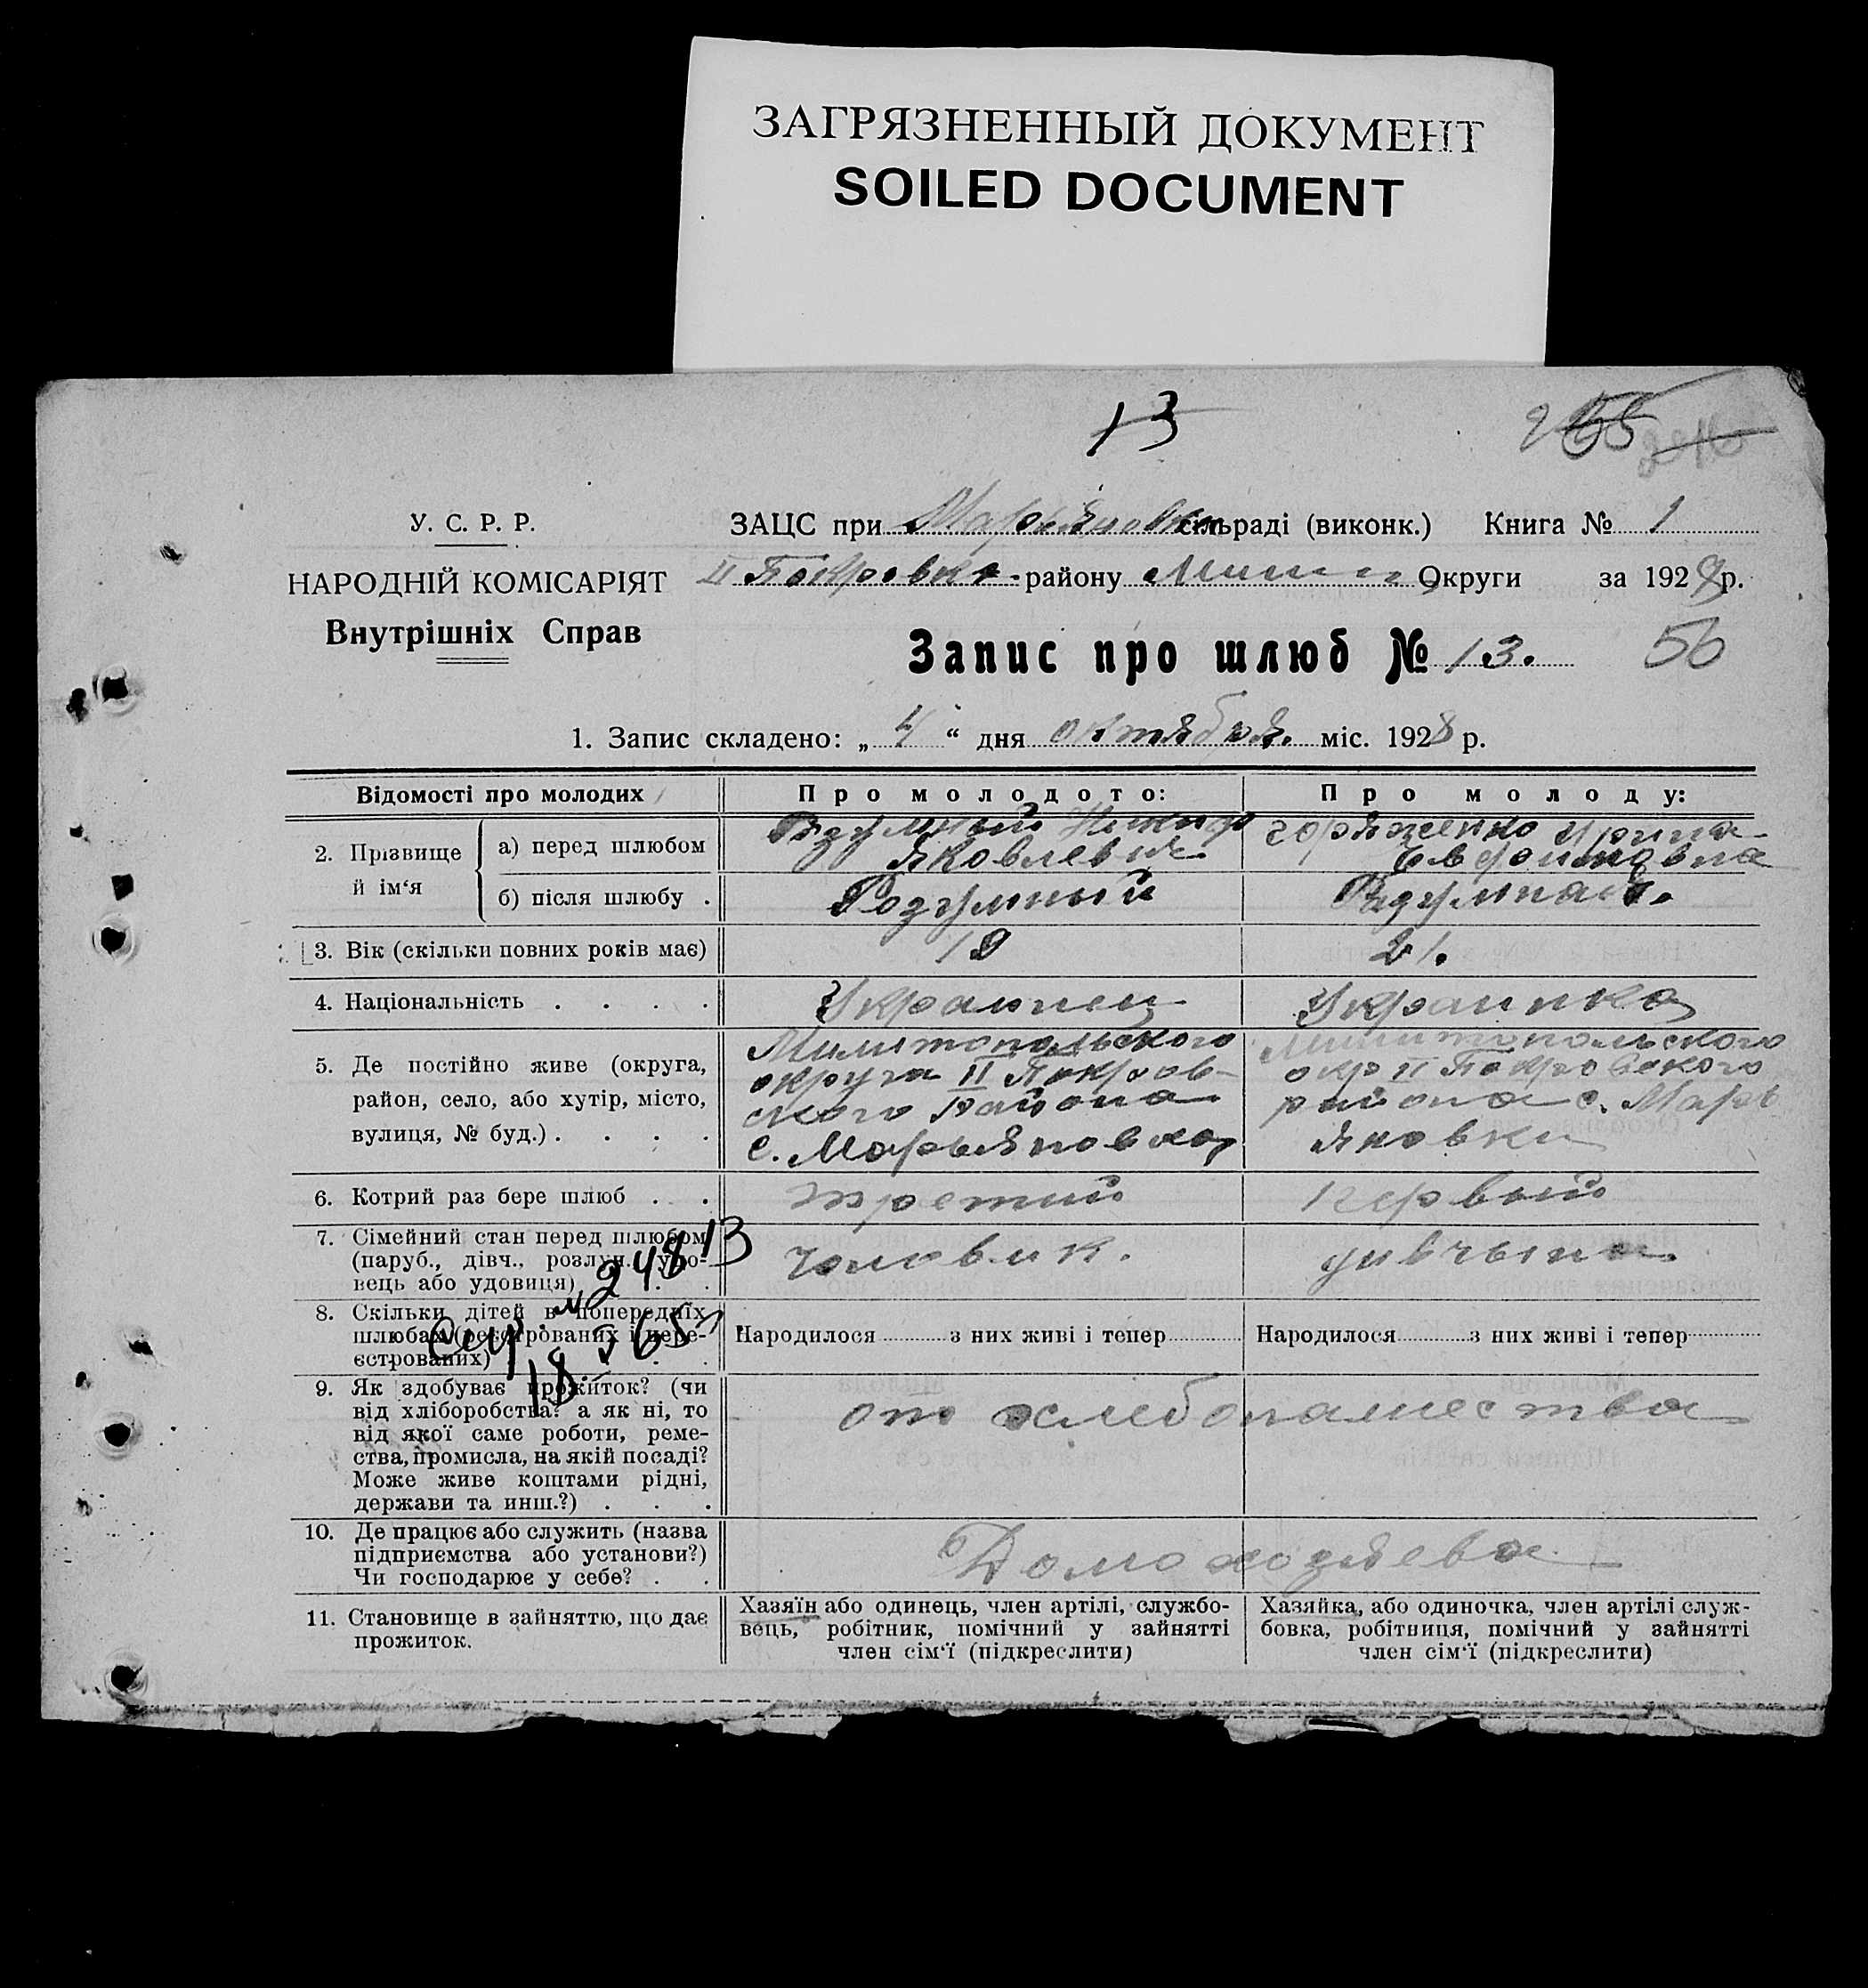 ЗАГРЯЗНЕННЫЙ ДОКУМЕНТ
SOILED DOCUMENT
13
У. С. Р. Р.
НАРОДНІЙ КОМІСАРІЯТ
Внутрішніх Справ
ЗАЦС при сільраді (виконк.) Книга № 1
II Покровка району Округи за 1928 р.
Запис про шлюб № 13. 56
1. Запис складено: „ 4 “ дня октября. міс. 1928 р.
Відомості про молодих
Про молодого:
Про молоду:
2. Прізвище й ім‘я
а) перед шлюбом
Яковлевич
Ирина
б) після шлюбу .
Розумный
Разумная.
3. Вік (скільки повних років має)
19
21.
4. Національність . . . .
Украинец
Украинка
5. Де постійно живе (округа,
район, село, або хутір, місто,
вулиця, № буд.) . . . .
Милитопольского
округа II Покров-
ского района
с. Марьяновка
Милитопольского
окр II Покровского
района с. Марь
яновки
6. Котрий раз бере шлюб . .
третий
первый
7. Сімейний стан перед шлюбом
(паруб., дівч., розлуч., удо-
вець або удовиця) . .
чоловик.
дивчына
24813
8. Скільки дітей в попередніх
шлюбах (реєстрованих і нере-
єстрованих) . .
Народилося з них живі і тепер
Народилося з них живі і тепер
9. Як здобуває прожиток? (чи
від хліборобства? а як ні, то
від якої саме роботи, реме-
ства, промисла, на якій посаді?
Може живе коштами рідні,
держави та инш.?) . . .
от хлебопашества
10. Де працює або служить (назва
підприємства або установи?)
Чи господарює у себе? . .
11. Становище в зайняттю, що дає
прожиток.
Хазяїн або одинець, член артілі, службо-
вець, робітник, помічний у зайнятті
член сім‘ї (підкреслити)
Хазяйка, або одиночка, член артілі служ-
бовка, робітниця, помічний у зайнятті
член сім‘ї (підкреслити)